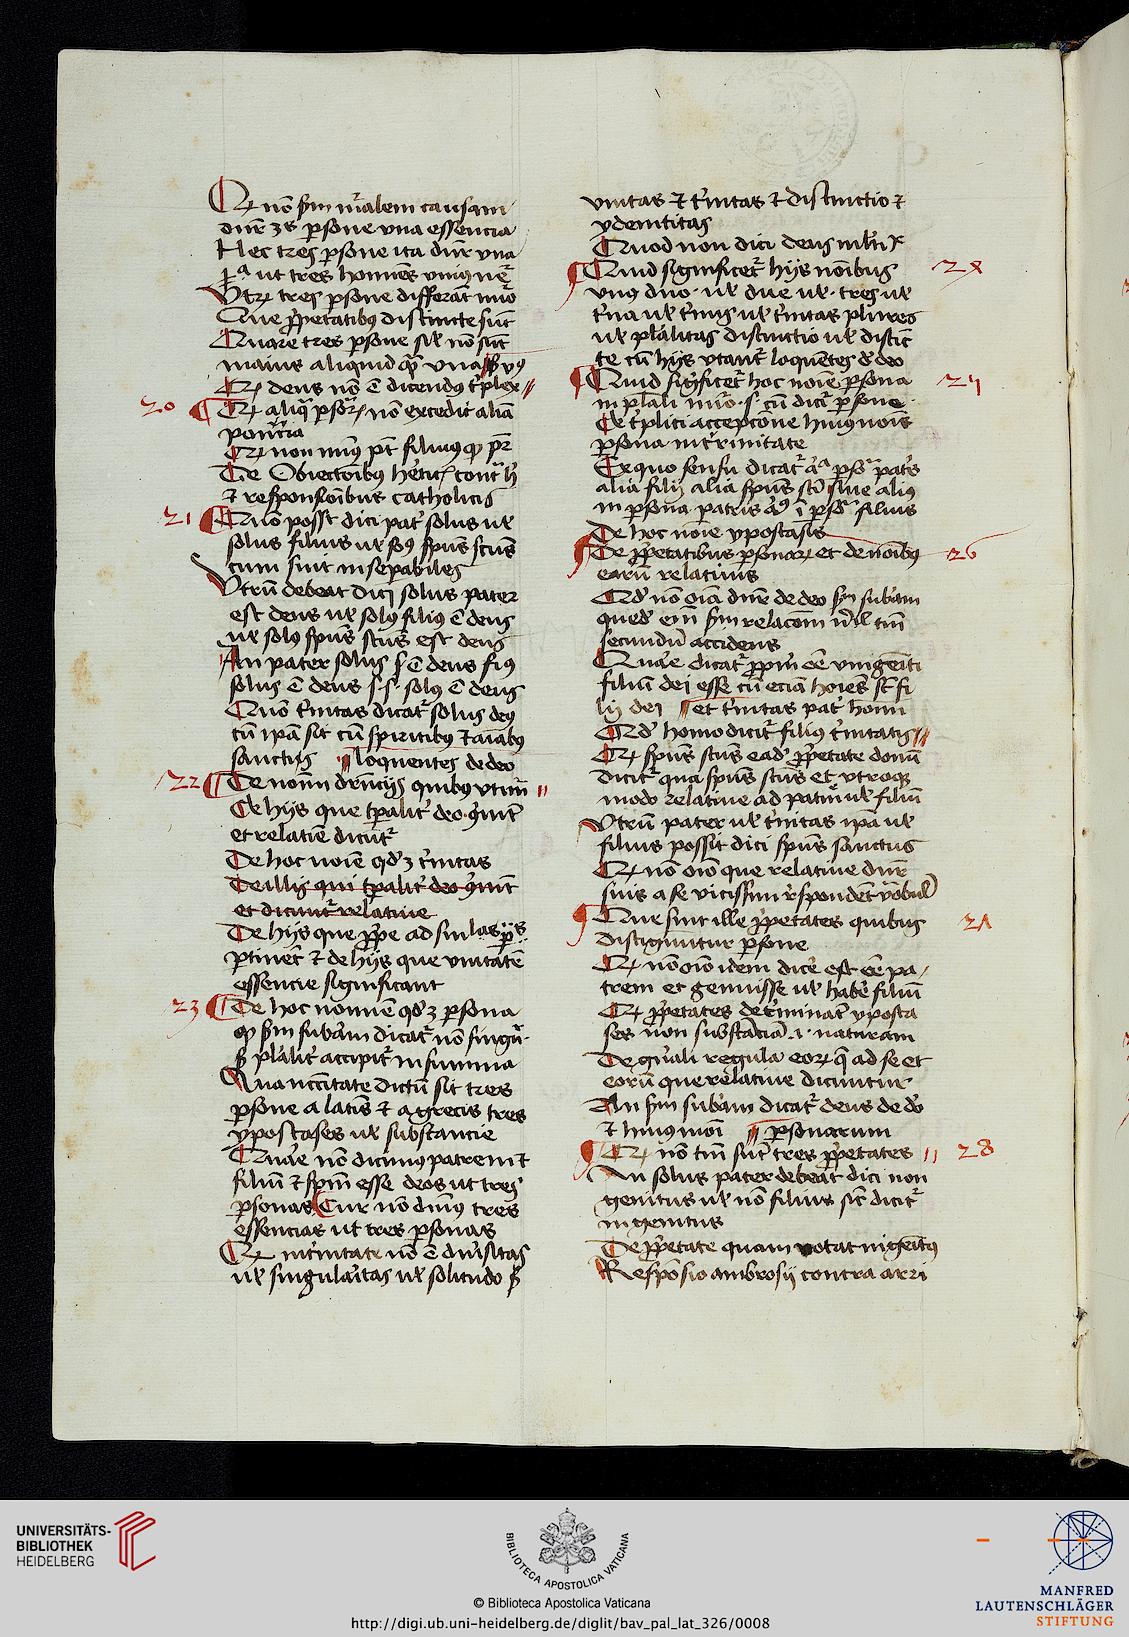 Qꝛ nō scḋm mͣalem causam
dn̄r ꝫs ꝑsone vna essencia
Nec tres ꝑsone ita dn̄r vna
ut tres homines vniꝰ nͤ
Vtꝝ tres ꝑsone differāt nūo
Que ꝓprietatibꝰ distincte sūt
Quare tres ꝑsone sil̄ nō sūt
maius aliquid qͣꝫ vna
Qꝛ deus nō ē dicendꝰ tͥplex
20 Qꝛ aliqͣ ꝑsōꝝ nō excedit aliā
potēcia
Qꝛ non minꝰ pōt filius qͣꝫ pr̄
De Obiectōibus
et responsōibus catholicis
21 Quō posset dici patͬ solus ul̄
solus filius ul̄ solꝰ spūs scūs
cum sint inseꝑabiles
Vtrū debeat dici solus pater
est deus ul̄ solꝰ filiꝰ ē deus
ul̄ solꝰ spūs scūs est deus
An pater solus sͥ ē deus filiꝰ
solus ē deus s. s. solꝰ ē deus
Quō tͥnitas dicatͬ solus deꝰ
cū ipā sit cū spiritibꝰ et aīabꝰ
sanctis loquentes de deo
22 De noīm drn̄cijs quibꝰ vtimͬ
De hijs que tꝑalitͬ deo ꝯueniūt
et relatiē dicūtͬ
De hoc noīe qḋ ē tͥnitas
De illis qui tꝑalitͬ deo ꝯueniūt
et dicuntͬ relatiue
De hijs que ꝓpͥe ad sīnlas ꝑs
ꝑtinēt et de hijs que vnitatē
essencie significant
23 De hoc nomīe qḋ ē ꝑsona
qͦ scḋm subām dicatͬ nō singuͣ
sꝫ plalitͬ accipitͬ in summa
Qua nccitate dictū sit tres
ꝑsone a latīs et a grecis tres
ypostases ul̄ substancie
Quaͬe nō dicimꝰ patrem et
filiū et spm̄ esse deos ut tres
ꝑsonas Cur nō dicimꝰ tres
essencias ut tres ꝑsonas
Qꝛ in tͥnitate nō ē diuͬsitas
ul̄ singulaͬitas ul̄ solitudo sꝫ
vnitas et tͥnitas et distinctio et
ydemtitas
Quod non dici deus
24 Quid significetͬ hijs noībus
vnꝰ duo ul̄ due ul̄ tres ul̄
tͥna ul̄ tͥnus ul̄ tͥnitas plures
ul̄ plalitas distinctio ul̄ distīc
te cū hijs vtantͬ loquētes de deo
25 Quid significetͬ hoc noīe ꝑsona
in plali nūo s cū dicͬ ꝑsone
De tͥplici accepcōne huiꝰ noīs
ꝑsona in tͬrinitate
Ex quo sensu dicatͬ aͣ ꝑsͣ patͥs
alia filij alia spūs scī siue aliꝰ
in ꝑsona patris aꝰ ī ꝑsͣ filius
De hoc noīe ypostasis
26 De ꝓpͥetatibus ꝑsonaꝝ et de noībꝰ
earū relatiuis
Qḋ nō oīa dn̄r de deo scḋm subam
queḋ em̄ scḋm relacōem nichil tn̄
secundū accidens
Quaͬe dicatͬ ꝓpm̄ eē vnigeīti
filiū dei esse cū eciā hoīes sīt fi
lij dei et tͥnitas patͬ homīm
Qḋ homo dicitͬ filius tͥnitatis
Qꝛ spūs scūs eaḋ ꝓpͥetate donū
dicitͬ qua spūs scūs et vtroqꝫ
modo relatiue ad patrē ul̄ filiū
Vtrū pater ul̄ tͥnitas ipā ul̄
filius possit dici spūs sanctus
Qꝛ nō oīo que relatiue dn̄r
suis a se vicissim rͤspondēt vōbul̄
27 Que sint ille ꝓpͥetates quibus
distiguuntur ꝑsone
Qꝛ nō oīo idem diceͬ est eē pa
trem et genuisse ul̄ habeͬ filiū
Qꝛ ꝓpͥetates deͬtminātͬ yposta
ses non substāciā .i. naturam
De gn̄ali regula eoꝝ q̄ ad se et
eorū que relatiue dicuntur
An scḋm subam dicatͬ deus de do
et huiꝰmoī ꝑsonarum
28 Qꝛ nō tm̄ sūt tres ꝓpͥetates
An solus pater debeat dici non
genitus ul̄ nō filius sīt dicitͬ
ingenitus
De ꝓpͥetate quam notat ingeītꝰ
Responsio ambrosij contra arri
UNIVERSITÄTS-
BIBLIOTHEK
HEIDELBERG
BIBLIOTECA APOSTOLICA VATICANA
© Biblioteca Apostolica Vaticana
http://digi.ub.uni-heidelberg.de/diglit/bav_pal_lat_326/0008
MANFRED
LAUTENSCHLÄGER
STIFTUNG